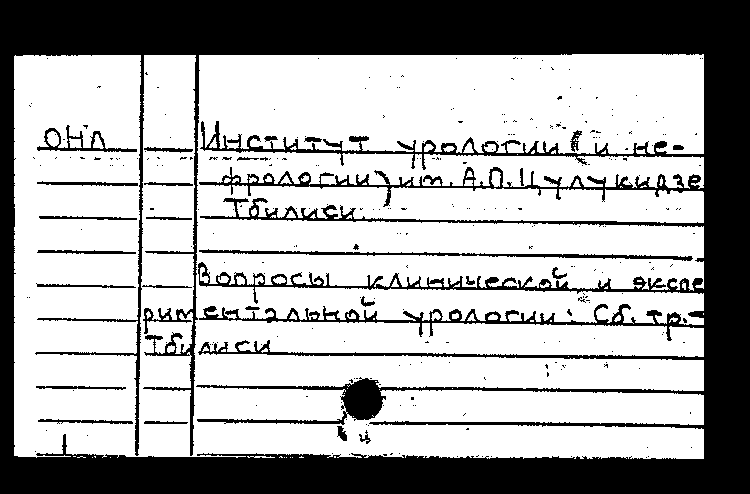 ОНЛ Институт урологии (и не-
фрологии) им. А.П.Цулукидзе
Тбилиси.
Вопросы клинической и экспе
риментальной урологии: Сб. тр.-
Тбилиси